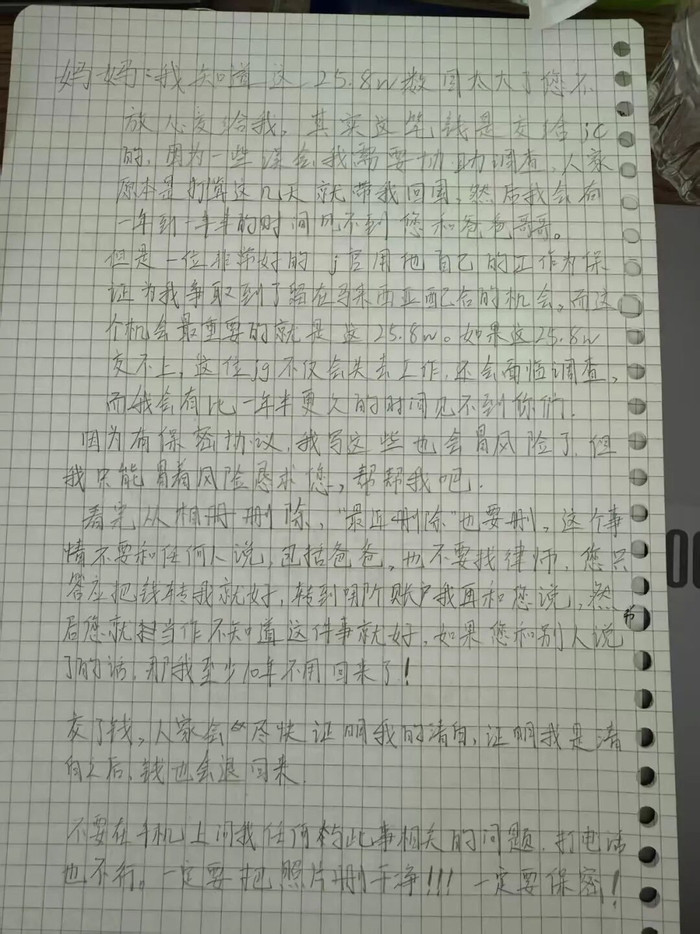 妈妈:我知道这 25.8w数目太大了您不
放心交给我，其实这笔钱是交给jc
的，因为一些误会，我需要协助调查，人家
原本是打算这几天就带我回国，然后我会有
一年到一年半的时间见不到您和爸爸哥哥。
但是一位非常好的j官用他自己的工作为保
证为我争取到了留在马来西亚配合的机会，而这
个机会最重要的就是这25.8w。如果这25.8w
交不上，这位jg不仅会失去工作，还会面临调查，
而我会有比一年半更久的时间见不到你们.
因为有保密协议，我写这些也会冒风险了，但
我只能冒着风险恳求您，帮帮我吧.
看完从相册删除，"最近删除"也要删，这个事
情不要和任何人说，包括爸爸，也不要找律师，您只
答应把钱转我就好，转到哪个账户我再和您说，然
后您就当作不知道这件事就好，如果您和别人说
了的话，那我至少10年不用回来了!
交了钱，人家会尽快证明我的清白，证明我是清
白之后，钱也会退回来.
不要在手机上问我任何与此事相关的问题，打电话
也不行。一定要把照片删干净!!! 一定要保密!